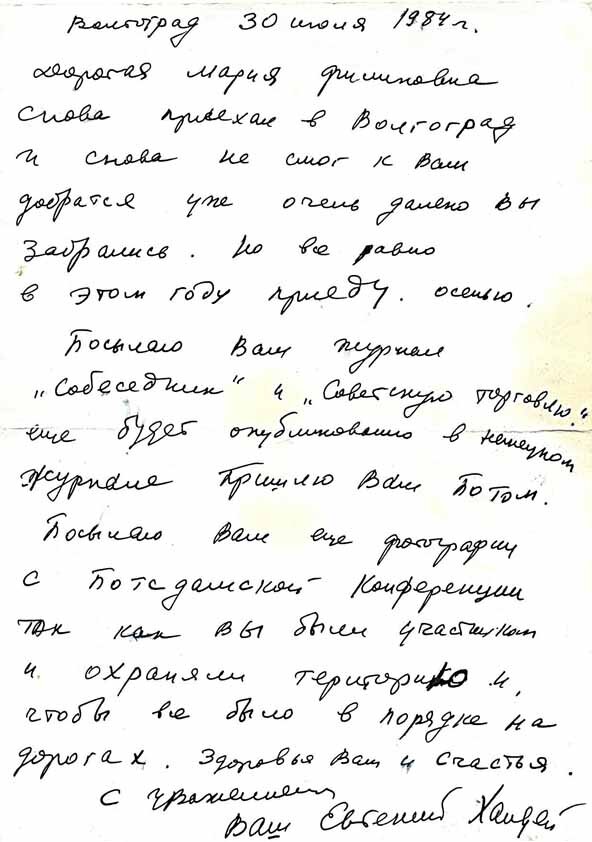 Волгоград 30 июля 1984 г.
Дорогая Мария Филиповна
Снова приехал в Волгоград
и снова не смог к Вам
добратся уже очень далеко Вы
забрались. Но все равно
в этом году приеду. осенью.
Посылаю Вам журнал
„Собеседник" и „Советскую торговлю."
еще будет опубликовано в немецком
журнале Пришлю Вам Потом.
Посылаю Вам еще фотографии
с Потсдамской Конференции
так как Вы были участником
и охраняли територию и,
чтобы все было в порядке на
дорогах. Здоровья Вам и счастья.
С уважением
Ваш Евгений Халдей